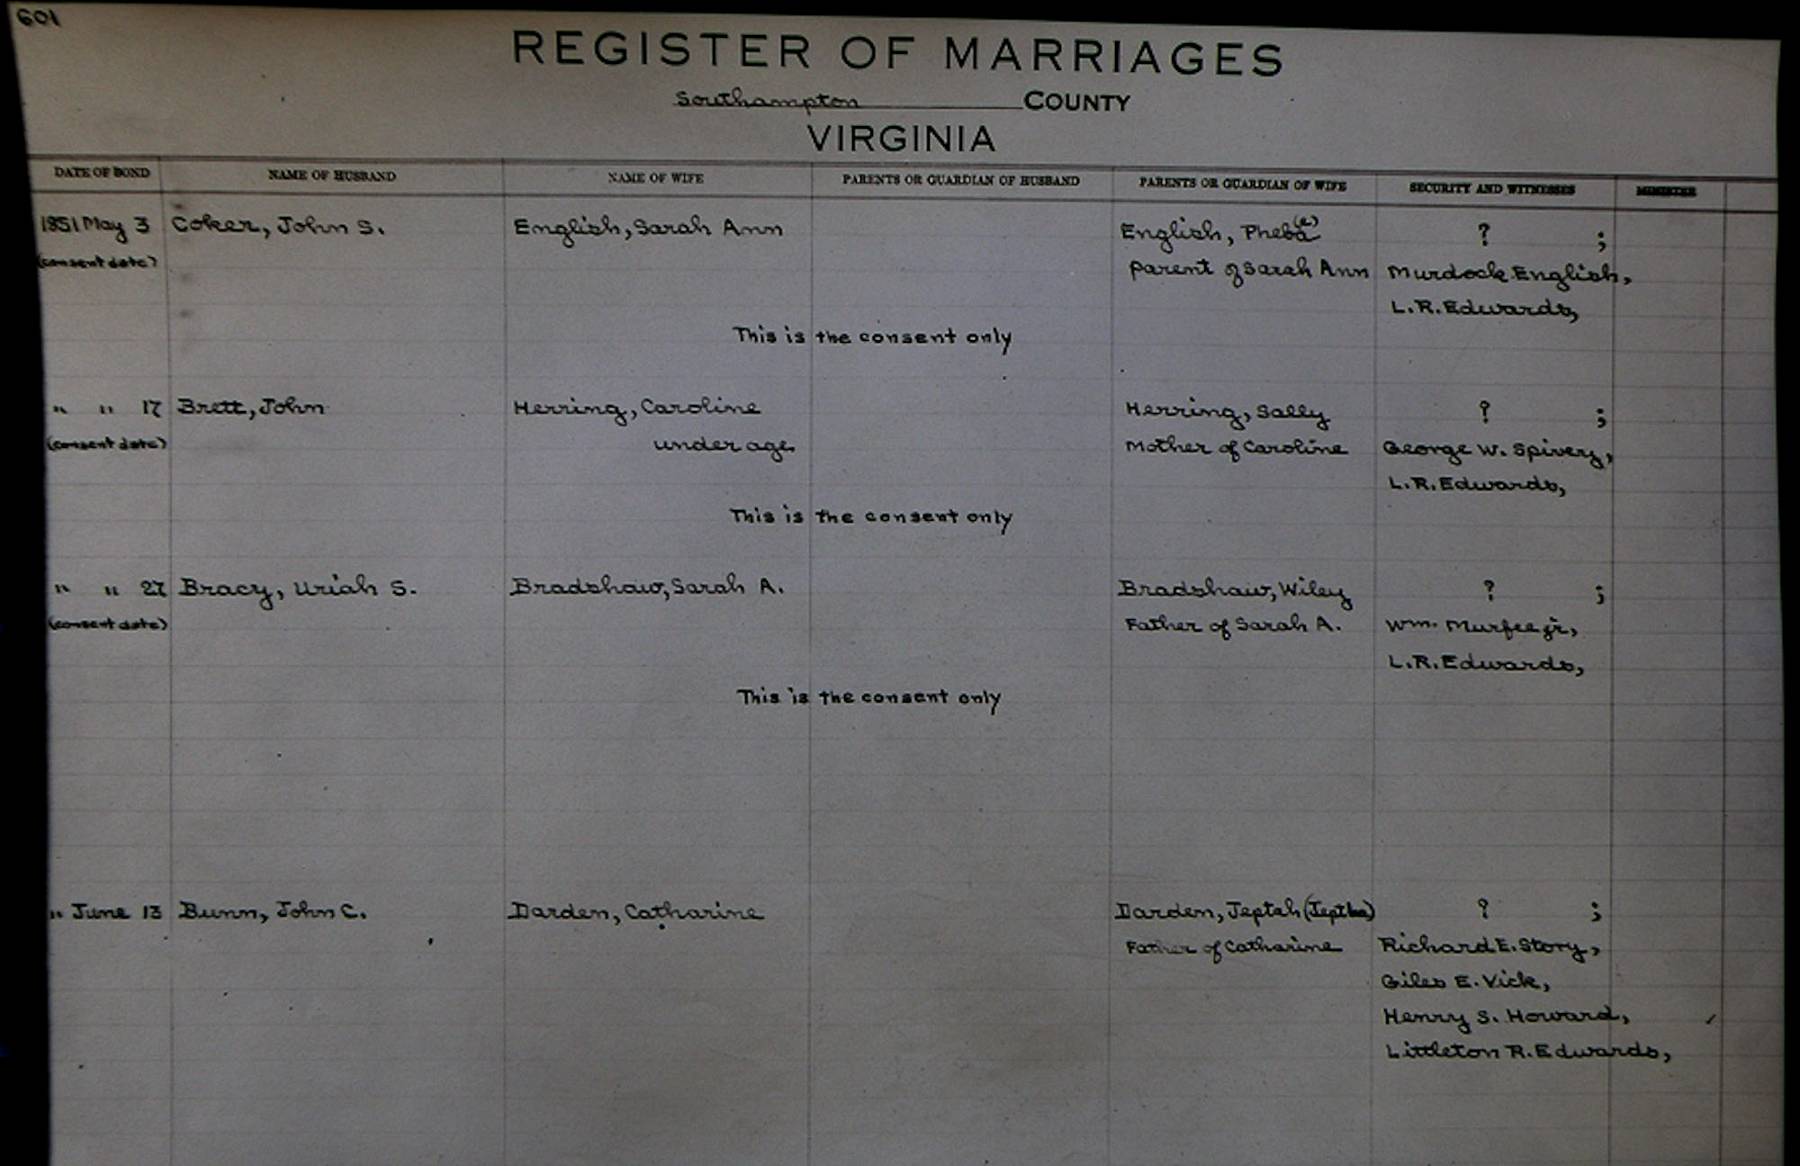 601
REGISTER OF MARRIAGES
Southampton COUNTY
VIRGINIA
DATE OF BOND NAME OF HUSBAND NAME OF WIFE PARENTS OR GUARDIAN OF HUSBAND PARENTS OR GUARDIAN OF WIFE SECURITY AND WITNESSES MINISTER
1851 May 3 Coker, John S. English, Sarah Ann English, Pheba (e) ? ;
(consent date) parent of Sarah Ann Murdock English,
L.R. Edwards,
This is the consent only
" " 17 Brett, John Herring, Caroline Herring, Sally ? ;
(consent date) under age Mother of Caroline George W. Spivery,
L.R. Edwards,
This is the consent only
" " 27 Bracy, Uriah S. Bradshaw, Sarah A. Bradshaw, Wiley ? ;
(consent date) Father of Sarah A. Wm. Murfee jr,
L.R. Edwards,
This is the consent only
" June 13 Bunn, John C. Darden, Catharine Darden, Jeptah (Jeptha) ? ;
Father of Catharine Richard E. Story,
Giles E. Vick,
Henry S. Howard,
Littleton R. Edwards,